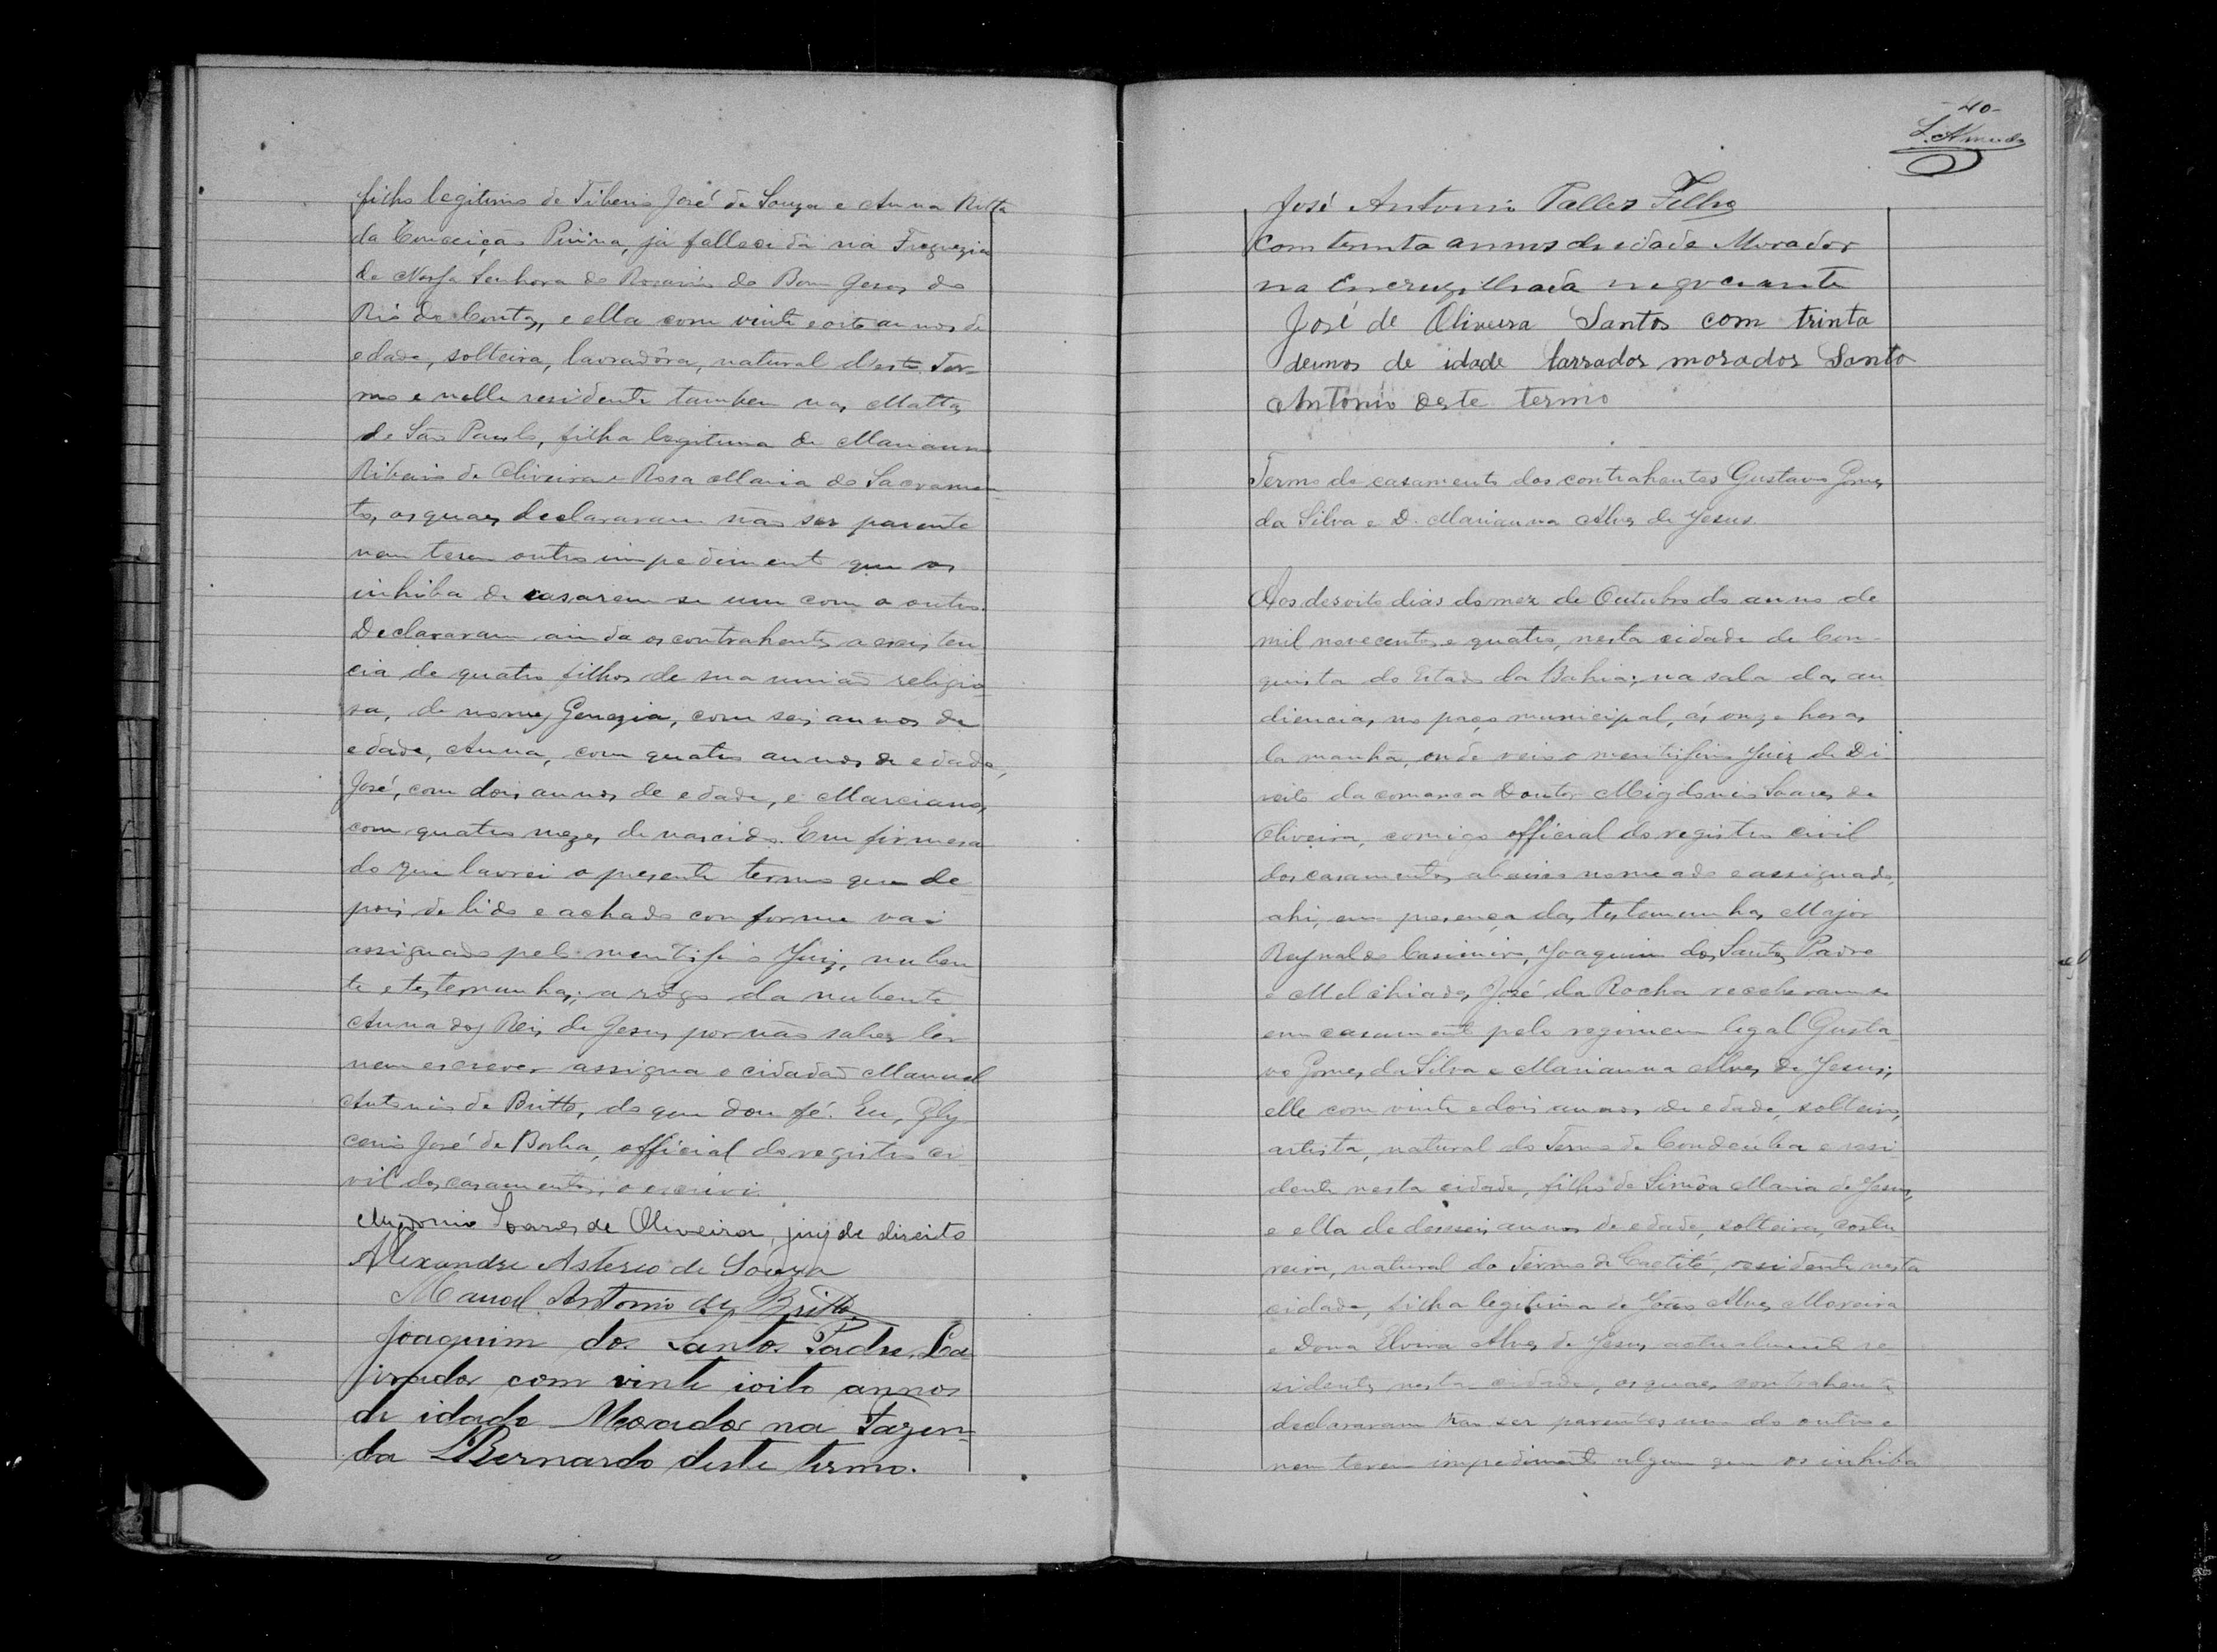 filho legitimo de Tiberio José de Souza e Anna Ritta
da Conceição Pirina, já fallecida na Freguezia
de Nossa Senhora do Rosario do Bom Jesus do
Rio de Contas, e ella com vinte e oito annos de
edade, solteira, lavradôra, natural d'este Ter-
mo e nelle residente tambem nas Mattas
de São Paulo, filha legitima de Marianno
Ribeiro de Oliveira e Rosa Maria do Sacramen-
to, os quaes declararam não ser parente
nem terem outro impediment que os
inhiba de casarem se um com o outro.
Declararam ainda os contrahentes a existen
cia de quatro filhos de sua união religio
sa, de nomes Genezia, com seis annos de
edade, Anna, com quatro annos de edade,
José, com dois annos de edade, e Marciano,
com quatro mezes de nascido. Em firmesa
do que lavrei o presente termo que de
pois de lido e achado conforme vai
assignado pelo meritissimo Juiz, nuben
te e testemunhas; a rôgo da nubente
Anna dos Reis de Jesus por não saber ler
nem escrever assigna o cidadão Manuel
Antonio de Britto, do que dou fé. Eu, Gly
cerio José da Rocha, official do registro ci
vil dos casamentos, o escrivi
Migdonio Soares de Oliveira, juiz de direito
Alexandre Asterio de Souza
Manoel Antonio de Britto
Joaquim dos Santos Padre, La-
vrador com vinte ioito annos
de idade Morador na Fazen-
da S Bernardo deste termo.
-40-
José Antonio Filho
com trinta annos de idade Morador
na Encruzilhada negociante
José de Oliveira Santos com trinta
de idade morador Santo
Antonio deste termo
Termo do casamento dos contrahentes Gustavo Gomes
da Silva e D. Marianna Alves de Jesus.
Aos desoito dias do mez de Outubro do anno de
mil novecentos e quatro, nesta cidade de Con-
quista do Estado da Bahia, na sala das au
diencias, no paço municipal, ás onze horas
da manhã, onde veio o meritissimo Juiz de Di
reito da comarca Doutor Migdonio Soares de
Oliveira, comigo official do registro civil
dos casamentos, abaixo nomeado e assignado,
ahi, em presença das testemunhas Major
Reynaldo Casimiro, Joaquim dos Santos Padre
e Melchiades José da Rocha receberam se
em casament pelo regimem legal Gusta
vo Gomes da Silva e Marianna Alves de Jesus;
elle com vinte e dois annos de edade, solteiro,
artista, natural do Termo de Condeúba e resi
dente nesta cidade, filho de Simôa Maria de Jesus,
e ella de desseis annos de edade, solteira, costu
reira, natural do Termo de Caetité, residente nesta
cidade, filha legitima de João Alves Moreira
e Dona Elvira Alves de Jesus, actualmente re
sidentes nesta cidade, os quaes contrahentes
declararam não ser parentes um do outro e
nem terem impedimento algum que os inhiba